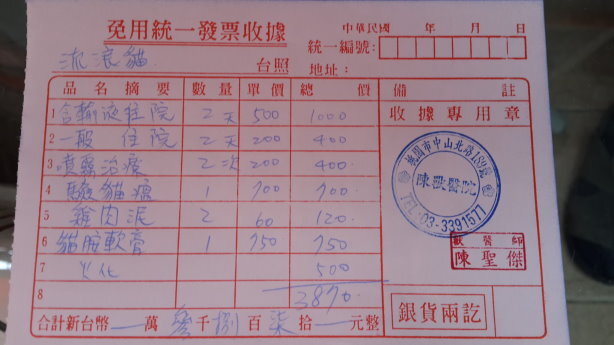 免用統一發票收據
中華民國 年 月 日
統一編號:
流浪貓 台照 地址:
品名摘要 數量 單價 總價 備註
1 含輸液住院 2天 500 1000
2 一般 住院 2天 200 400
3 噴霧治療 2次 200 400
4 驗貓瘟 1 700 700
5 雞肉泥 2 60 120
6 貓軟膏 1 750 750
7 火化 500
8 3870
合計新台幣 — 萬 參 千 捌 百 柒 拾 — 元整
收據專用章
桃園市中山北路189號
陳獸醫院
TEL:03-3391577
獸醫師
陳聖傑
銀貨兩訖